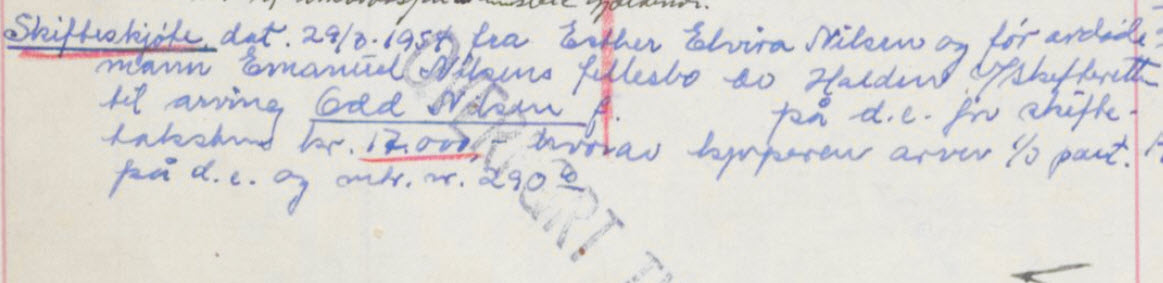 Skifteskjøte, dat. 29/3.1954 fra Esther Elvira Nilsen og før avdøde
mann Emanuel Nilsens fellesbo av Halden v/Skifterett
til arving Odd Nilsen f. på d.e. for skifte-
taksten kr. 17.000,- hvorav kjøperen arver 1/3 part.
på d.e. og mtr. nr. 290